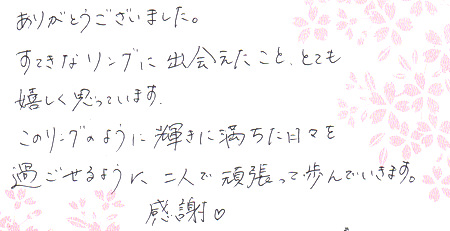 ありがとうございました。
すてきなリングに出会えたこと、とても
嬉しく思っています。
このリングのように輝きに満ちた日々を
過ごせるように、二人で頑張って歩んでいきます。
感謝♡